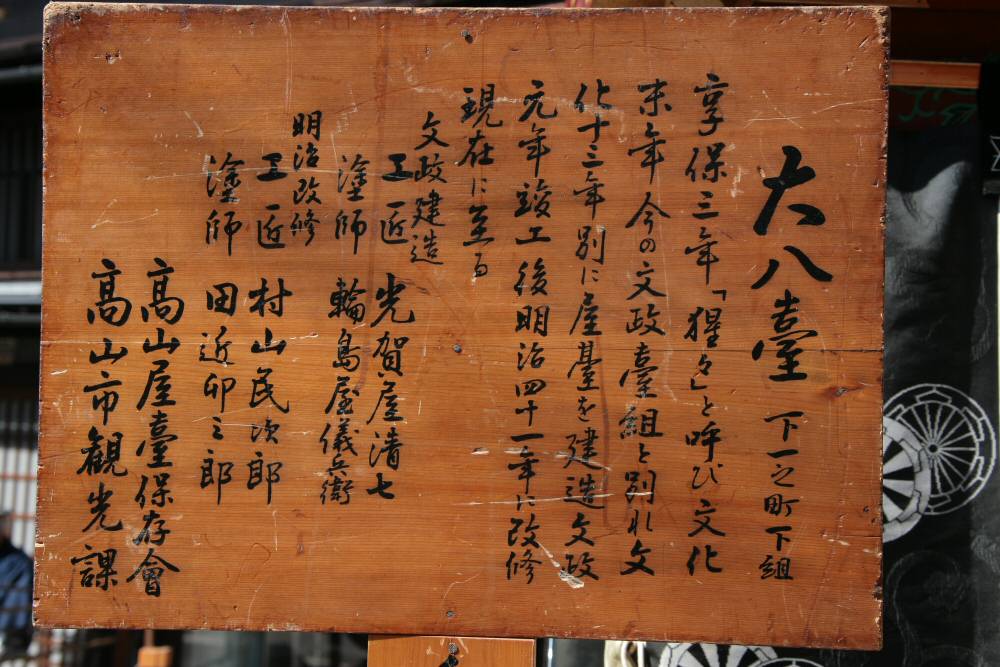 大八臺 下一之町下組
享保三年「猩々」と呼び文化
末年今の文政臺組と別れ文
化十三年別に屋臺を建造文政
元年竣工後明治四十一年に改修
現在に至る
文政建造
工匠 光賀屋清七
塗師 輪島屋儀兵衛
明治改修
工匠 村山民次郎
塗師 田近卯之郎
高山屋臺保存會
高山市観光課